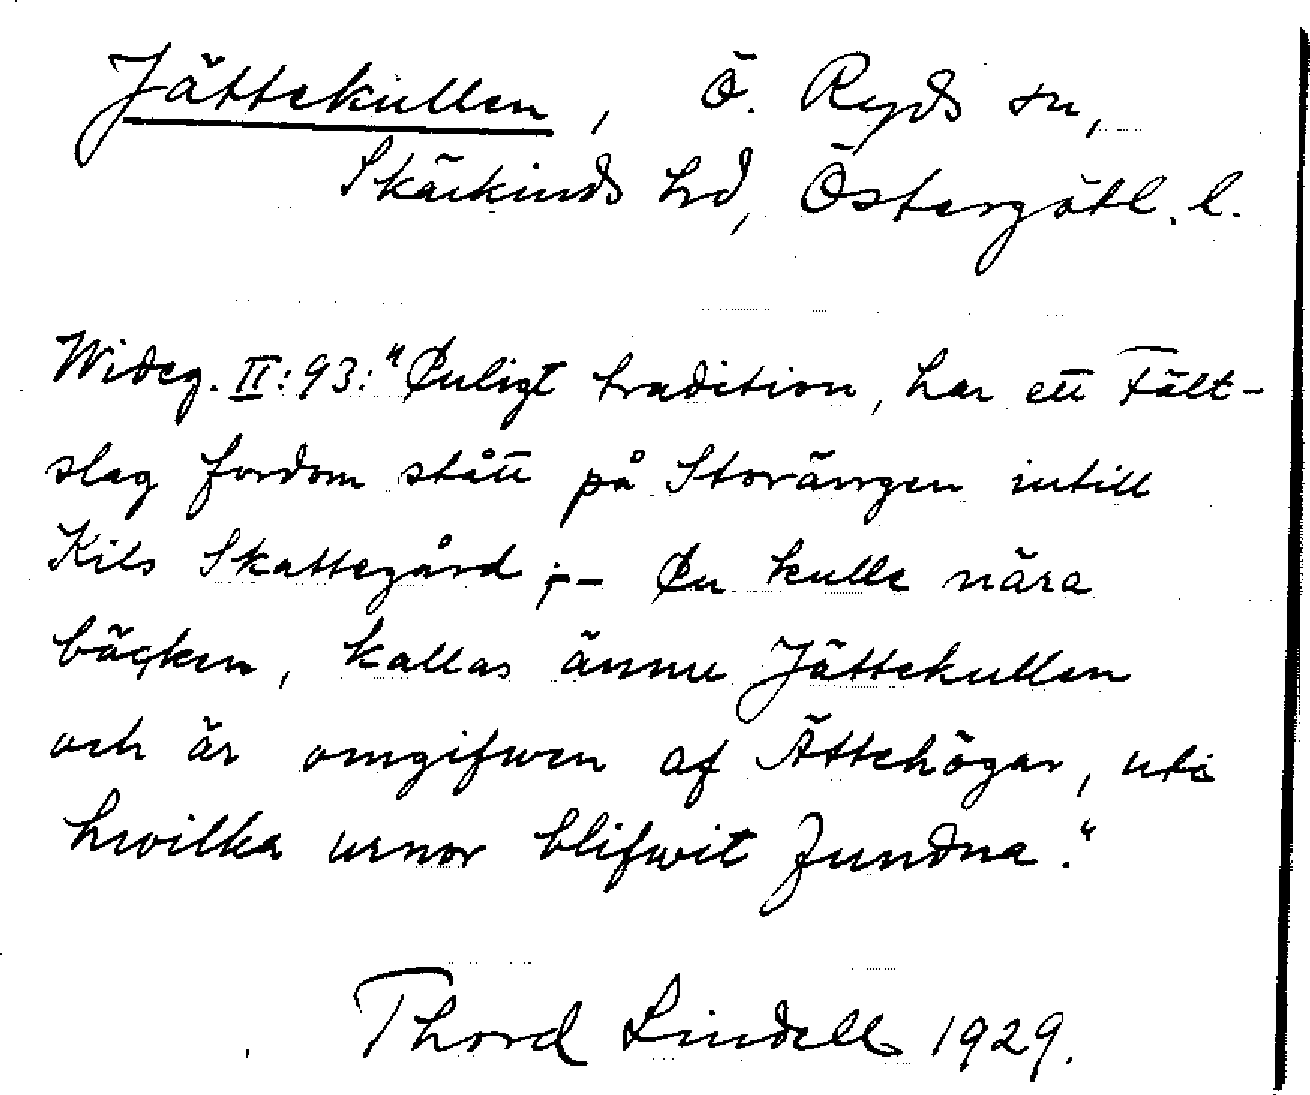 Jättekullen, Ö. Ryds sn,
Skärkinds hd, Östergötl. l.
Wideg. II:93: "Enligt tradition, har ett Fält-
slag fordom stått på Storängen intill
Kils Skattegård ;- En kulle nära
bäcken, kallas ännu Jättekullen
och är omgifwen af Ättehögar, uti
hwilka urnor blifwit fundna."
Thord Lindell 1929.